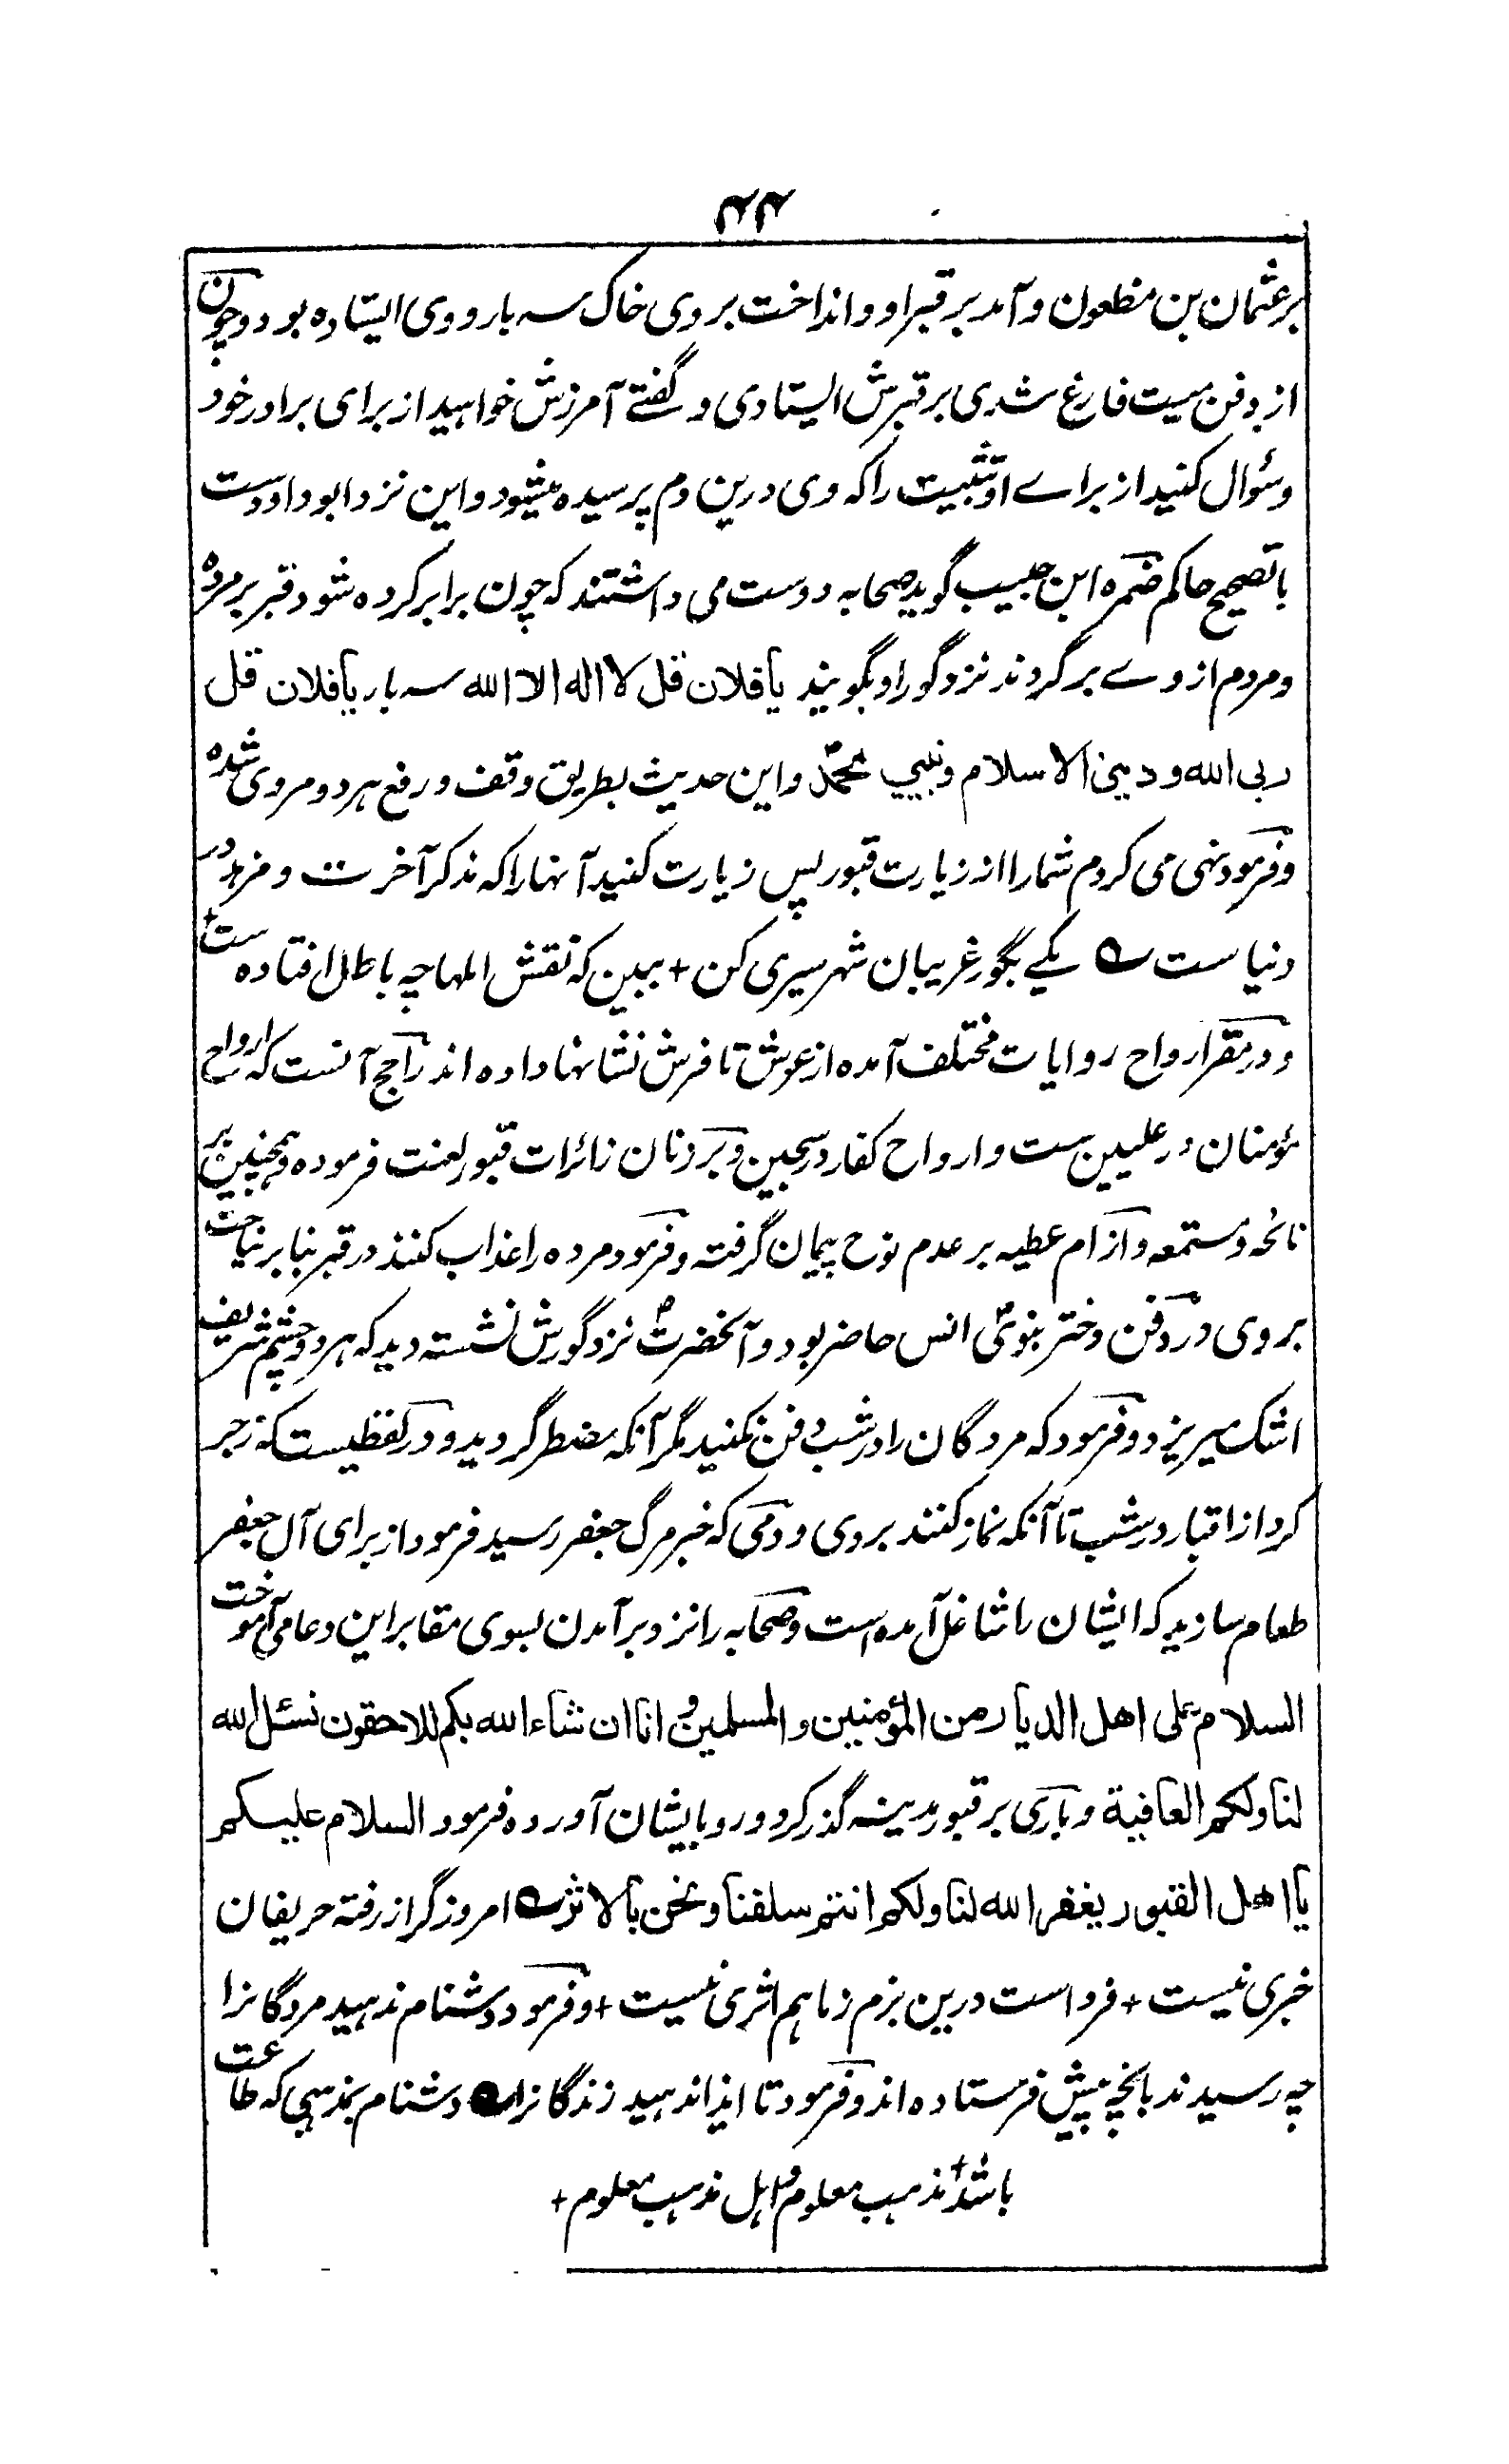 ۴۴
بر عثمان بن مظعون و آمد بر قبر او و انداخت بروی خاک سه بار و وی ایستاده بود و چون
از دفن میت فارغ شدی بر قبرش ایستادی و گفتے آمرزش خواہید از برای برادر خود
و سئوال کنید از براے او تثبیت را که وی درین دم پرسیده میشود و این نزد ابو داودست
با تصحیح حاکم ضمره ابن حبیب گوید صحابه دوست می داشتند که چون برابر کرده شود قبر بر مرده
و مردم از وے برگردند نزد گور او بگویند یا فلان قل لا اله الا الله سه بار یا فلان قل
ربی الله و دینی الاسلام و نبیی محمد و این حدیث بطریق وقف و رفع هر دو مروی شده
و فرمود نهی می کردم شما را از زیارت قبور پس زیارت کنید آنها را که مذکر آخرت و مزهد در
دنیا ست یکے بگور غریبان شهر سیری کن + ببین که نقش املها چه باطل افتاده ست +
و در مقر ارواح روایات مختلف آمده از عرش تا فرش نشانها داده اند راجح آنست که ارواح
مؤمنان در علیین ست و ارواح کفار در سجین و بر زنان زائرات قبور لعنت فرموده و همچنین بر
نائحه و مستمعه و از ام عطیه بر عدم نوح پیمان گرفته و فرمود مرده را عذاب کنند در قبر بنا بر نیاحت
بروی در دفن دختر نبوی انس حاضر بود و آنحضرت نزد گورش نشسته دید که هر دو چشم شریف
اشک میریزد و فرمود که مردگان را در شب دفن نکنید مگر آنکه مضطر گردید و در لفظیست که زجر
کرد از اقبار در شب تا آنکه نماز کنند بروی و دمی که خبر مرگ جعفر رسید فرمود از برای آل جعفر
طعام سازید که ایشان را شاغل آمده است و صحابه را نزد برآمدن بسوی مقابر این دعا می آموخت
السلام علی اهل الدیار من المؤمنین و المسلمین و انا ان شاء الله بکم للاحقون نسئل الله
لنا و لکم العافیة و باری بر قبور مدینه گذر کرد و رو بایشان آورده فرمود السلام علیکم
یا اهل القبور یغفر الله لنا و لکم انتم سلفنا و نحن بالاثر امروز گر از رفته حریفان
خبری نیست + فرداست درین بزم ز ما هم اثری نیست + و فرمود دشنام ندهید مردگانرا
چه رسیدند بانچه پیش فرستاده اند و فرمود تا ایذا ندهید زندگانرا دشنام بمذهبی که طاعت
باشد + مذهب معلوم و اهل مذهب معلوم +